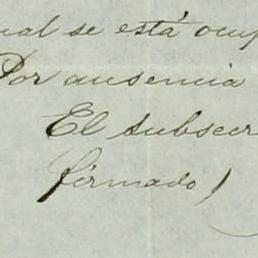 ual se está ocup
Por ausencia
El subsecr
firmado)